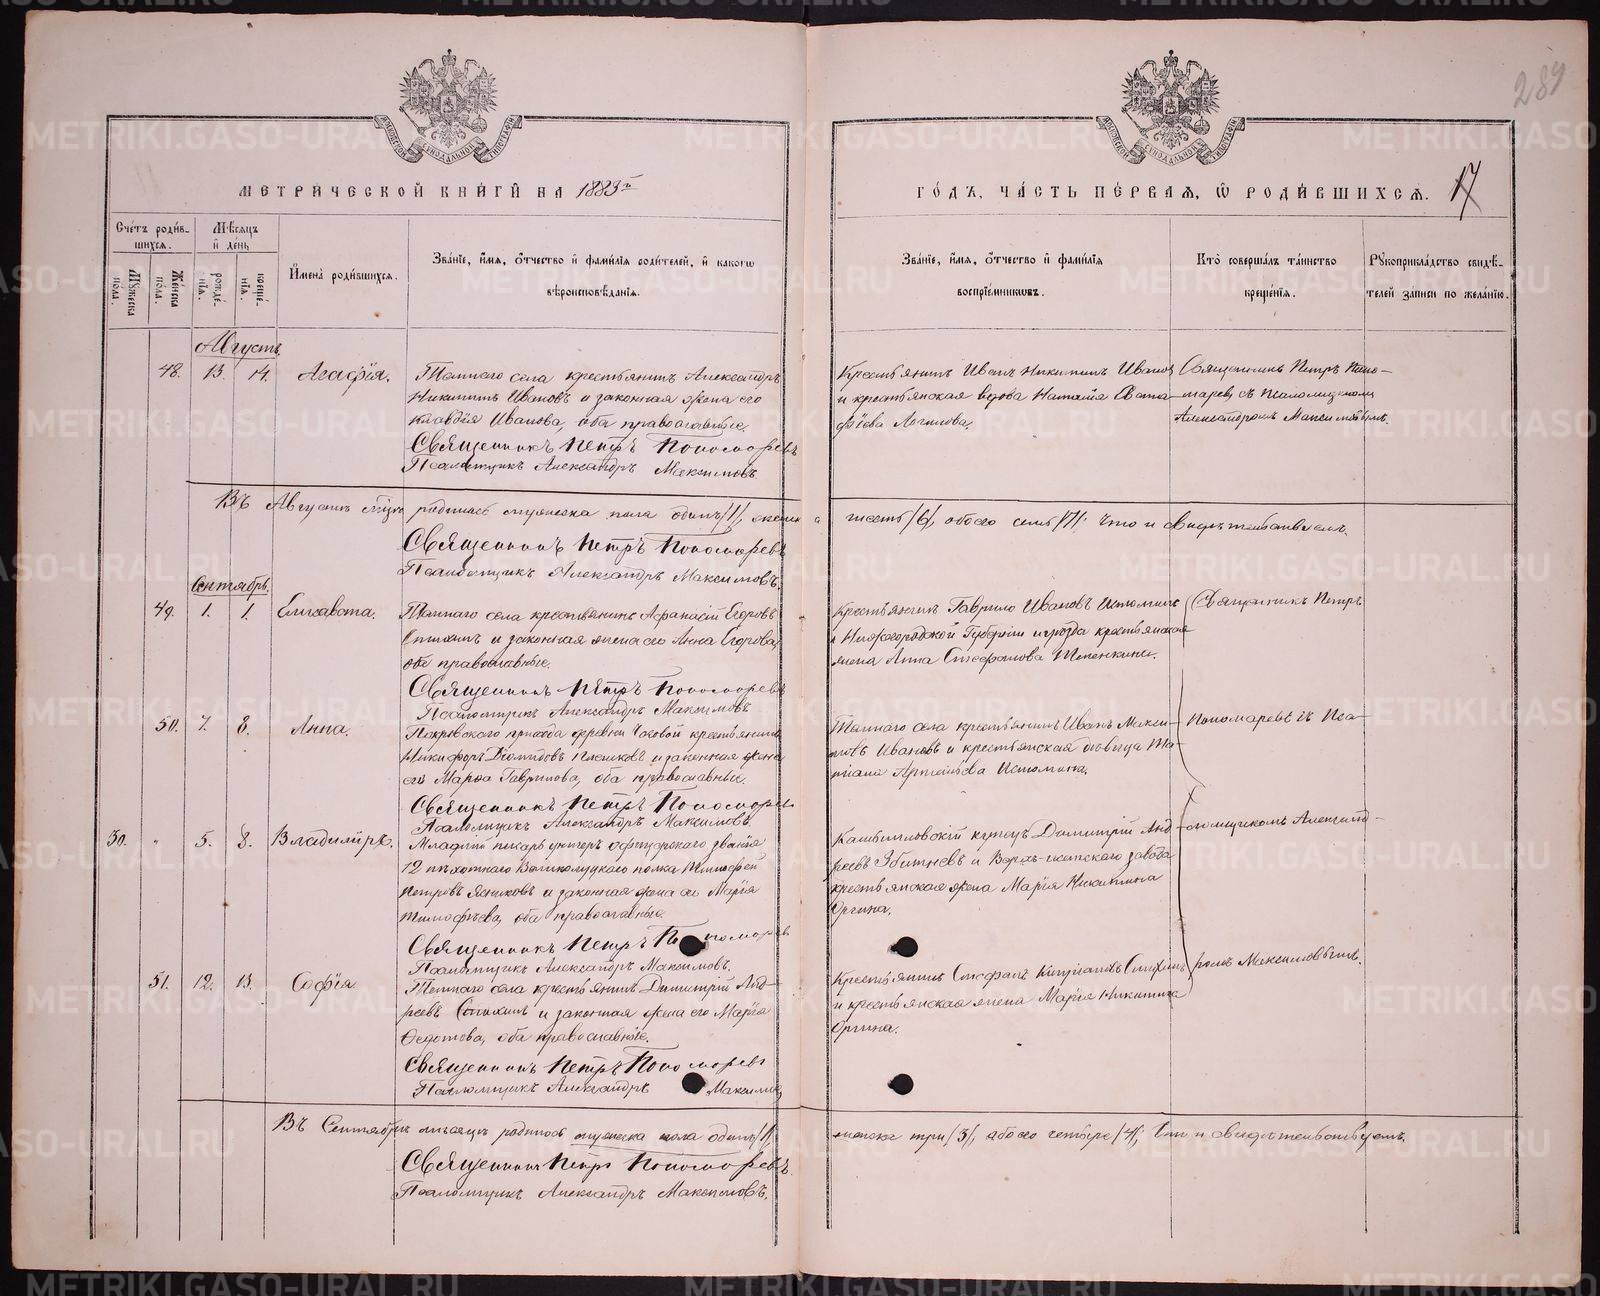 289
МЕТРИЧЕСКОЙ КНИГИ НА 1883й
ГОДЪ, ЧАСТЬ ПЕРВАЯ, Ѡ РОДИВШИХСЯ. 17
Счетъ родившихся.
Мѣсяцъ и день
Мужеска пола.
Женска пола.
рожденія.
крещенія.
Имена родившихся.
Званіе, имя, отчество и фамилія родителей, и какого
вѣроисповѣданія.
Званіе, имя, отчество и фамилія
воспріемниковъ.
Кто совершалъ таинство
крещенія.
Рукоприкладство свидѣ-
телей записи по желанію.
Августъ.
48. 13. 14. Агафія.
Тамнаго села крестьянинъ Александръ
Никитинъ Ивановъ и законная жена его
Клавдія Иванова, оба православные.
Священникъ Петръ Пономаревъ
Псаломщикъ Александръ Максимовъ.
Крестьянинъ Иванъ Никитинъ Ивановъ
и крестьянская вдова Наталія
Логинова.
Священникъ Петръ Поно-
маревъ, съ Псаломщикомъ
Александромъ Максимовымъ.
Въ Августѣ мцѣ родилось мужеска пола одинъ /1/, женска
шесть /6/, обоего семь /7/; Что и свидѣтельствуемъ.
Священникъ Петръ Пономаревъ
Псаломщикъ Александръ Максимовъ.
Сентябрь.
49. 1. 1. Елисавета.
Тамнаго села крестьянинъ Афанасій Егоровъ
и законная жена его Анна Егорова,
оба православные.
Священникъ Петръ Пономаревъ
Псаломщикъ Александръ Максимовъ
Крестьянинъ Гаврило Ивановъ Истоминъ
и Нижегородской Губерніи и уѣзда крестьянская
жена Анна Стефанова
Священникъ Петръ
50. 7. 8. Анна.
Покровскаго прихода деревни Часовой крестьянинъ
Никифоръ и законная жена
его Марѳа Гаврилова, оба православные.
Священникъ Петръ Пономаревъ
Псаломщикъ Александръ Максимовъ.
Тамнаго села крестьянинъ Иванъ Макси-
мовъ Ивановъ и крестьянская дѣвица Та-
тіана Истомина.
Пономаревъ съ Пса-
30. " 5. 8. Владиміръ.
Младшій писарь унтеръ офицерскаго званія
12 пѣхотнаго Великолуцкаго полка Тимофей
Петровъ и законная жена его Марія
Тимофѣева, оба православные.
Священникъ Петръ Пономаревъ
Псаломщикъ Александръ Максимовъ.
Камышловскій купецъ Димитрій Анд-
реевъ и Верхъ-исетскаго завода
крестьянская жена Марія Никитина
Оргина.
ломщикомъ Александ-
51. 12. 13. Софія
Тамнаго села крестьянинъ Димитрій Анд-
реевъ и законная жена его Марія
Ѳедотова, оба православные.
Священникъ Петръ Пономаревъ
Псаломщикъ Александръ Максимовъ
Крестьянинъ Стефанъ
и крестьянская жена Марія Никитина
Оргина.
ромъ Максимовымъ.
Въ Сентябрѣ мѣсяцѣ родилось мужеска пола одинъ /1/,
женска три /3/, а обоего четыре /4/; Что и свидѣтельствуемъ.
Священникъ Петръ Пономаревъ.
Псаломщикъ Александръ Максимовъ.
METRIKI.GASO-URAL.RU